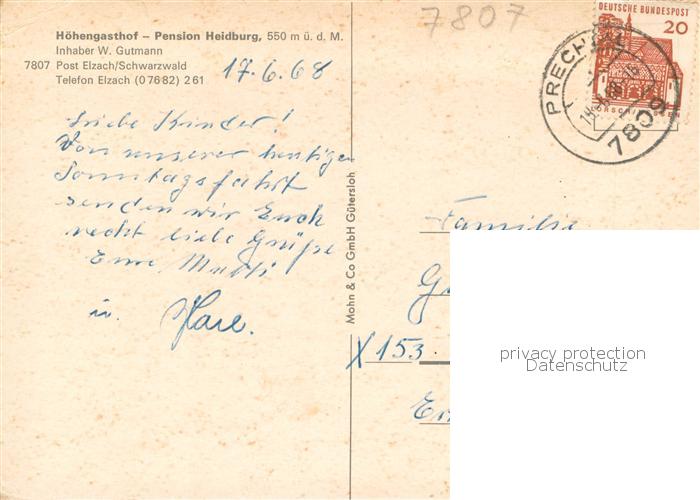 Höhengasthof – Pension Heidburg, 550 m ü. d. M.
Inhaber W. Gutmann
7807 Post Elzach/Schwarzwald
Telefon Elzach (0 76 82) 2 61
7807
DEUTSCHE BUNDESPOST
20
PRECH
7809
17.6.68
Liebe Kinder!
Von unserer heutigen
Sonntagsfahrt
senden wir Euch
recht liebe Grüße
Eure Mutti
u.
Mohn & Co GmbH Gütersloh
Familie
X 153.
privacy protection
Datenschutz